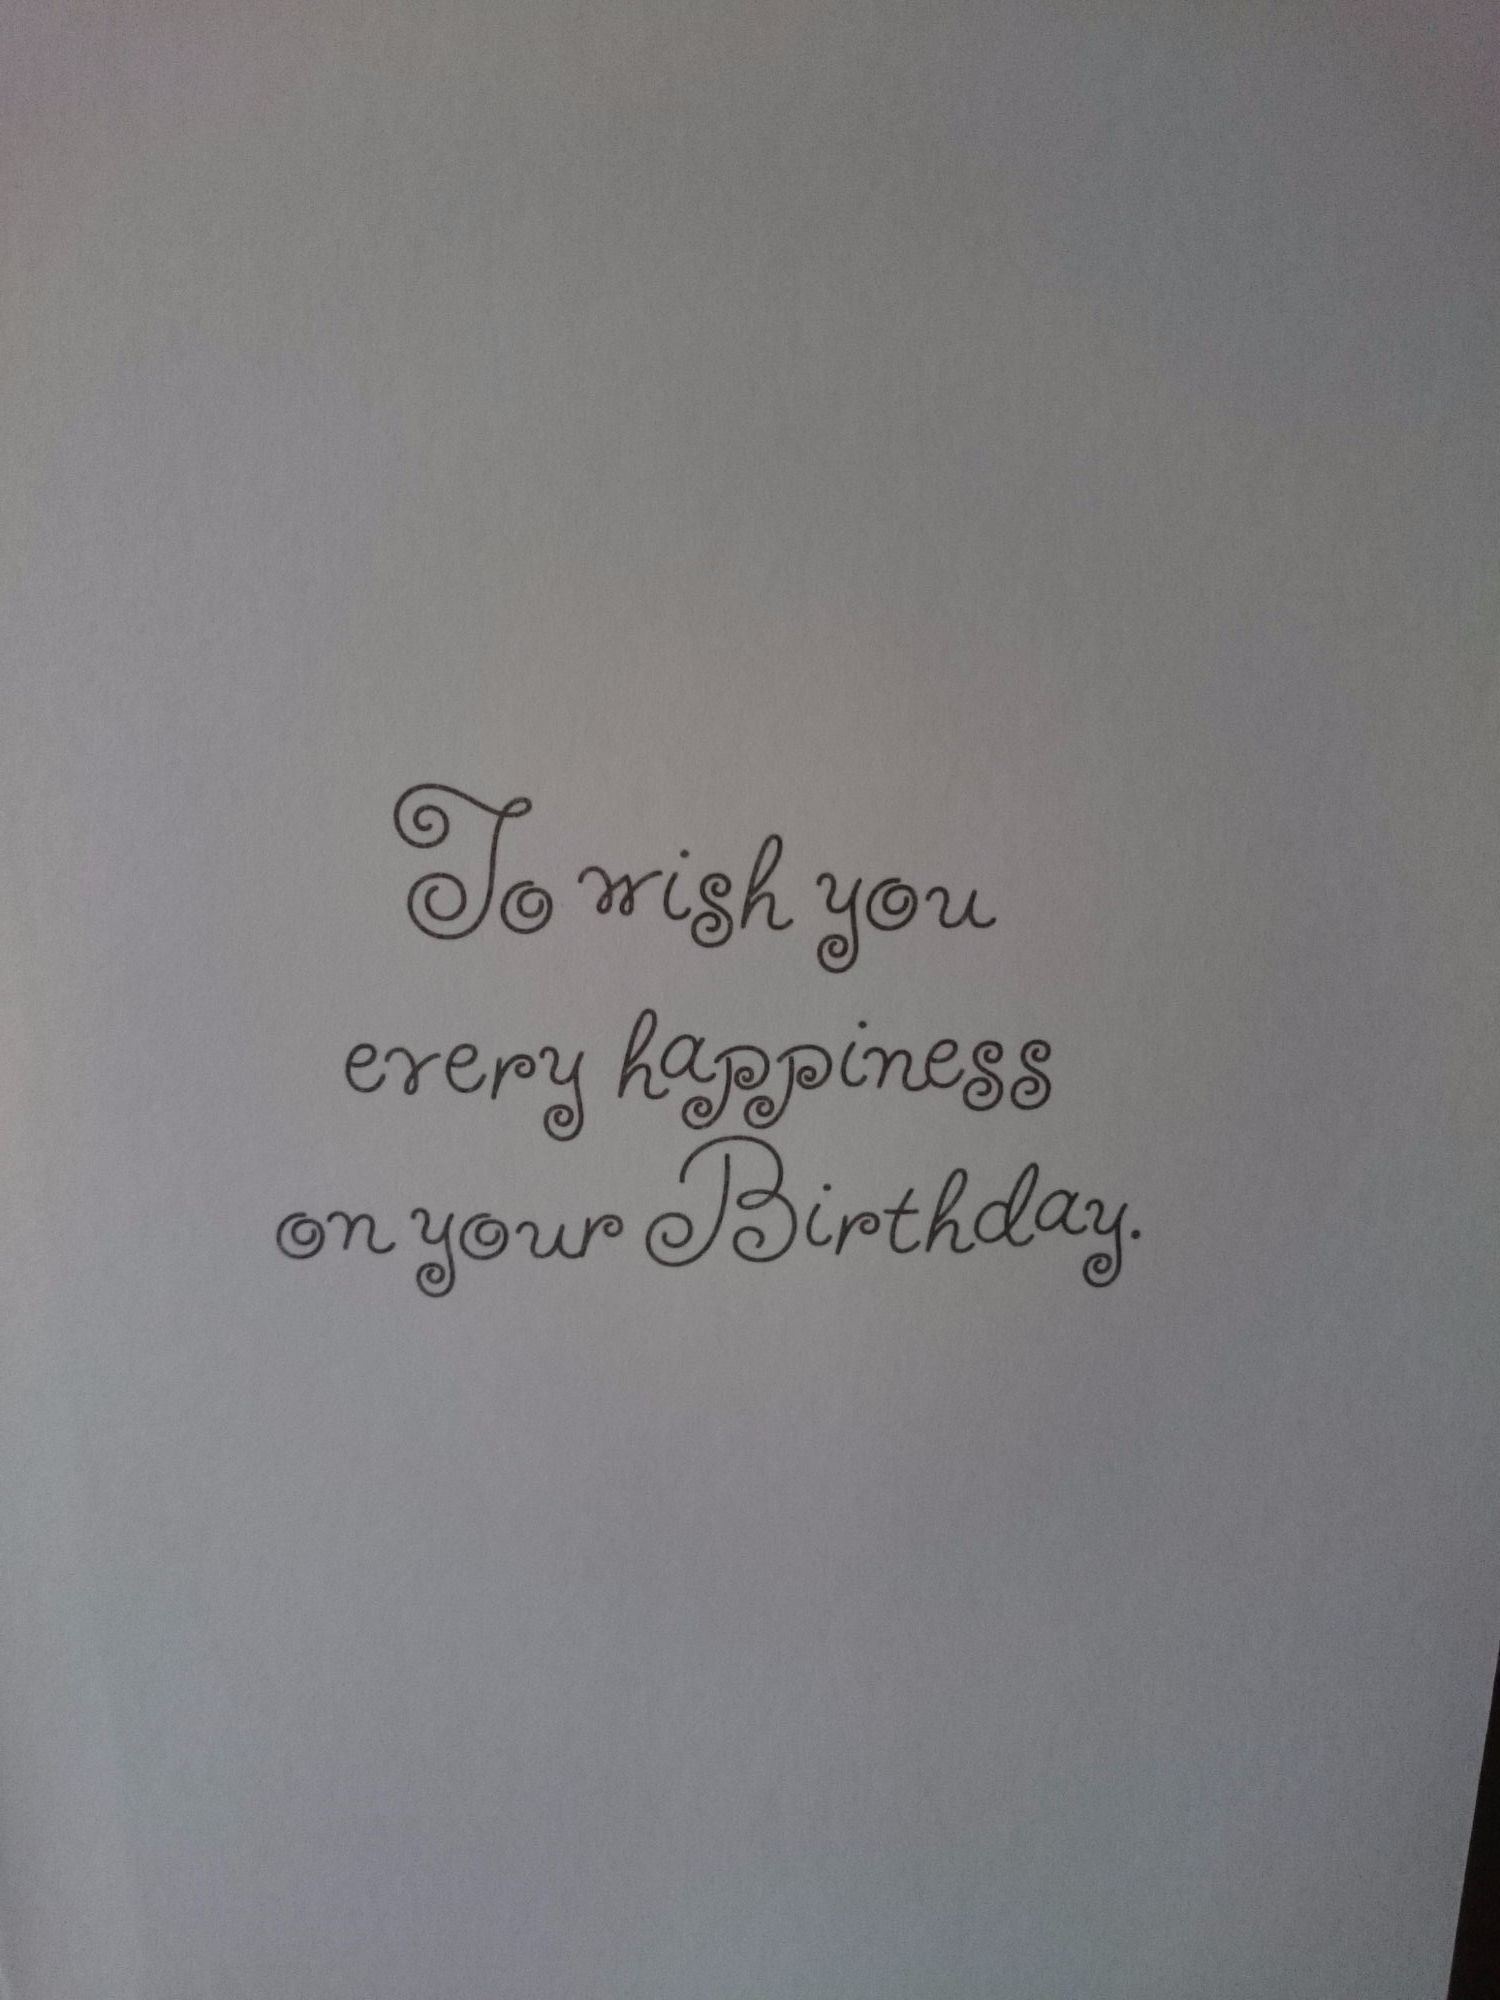 To wish you
every happiness
on your Birthday.